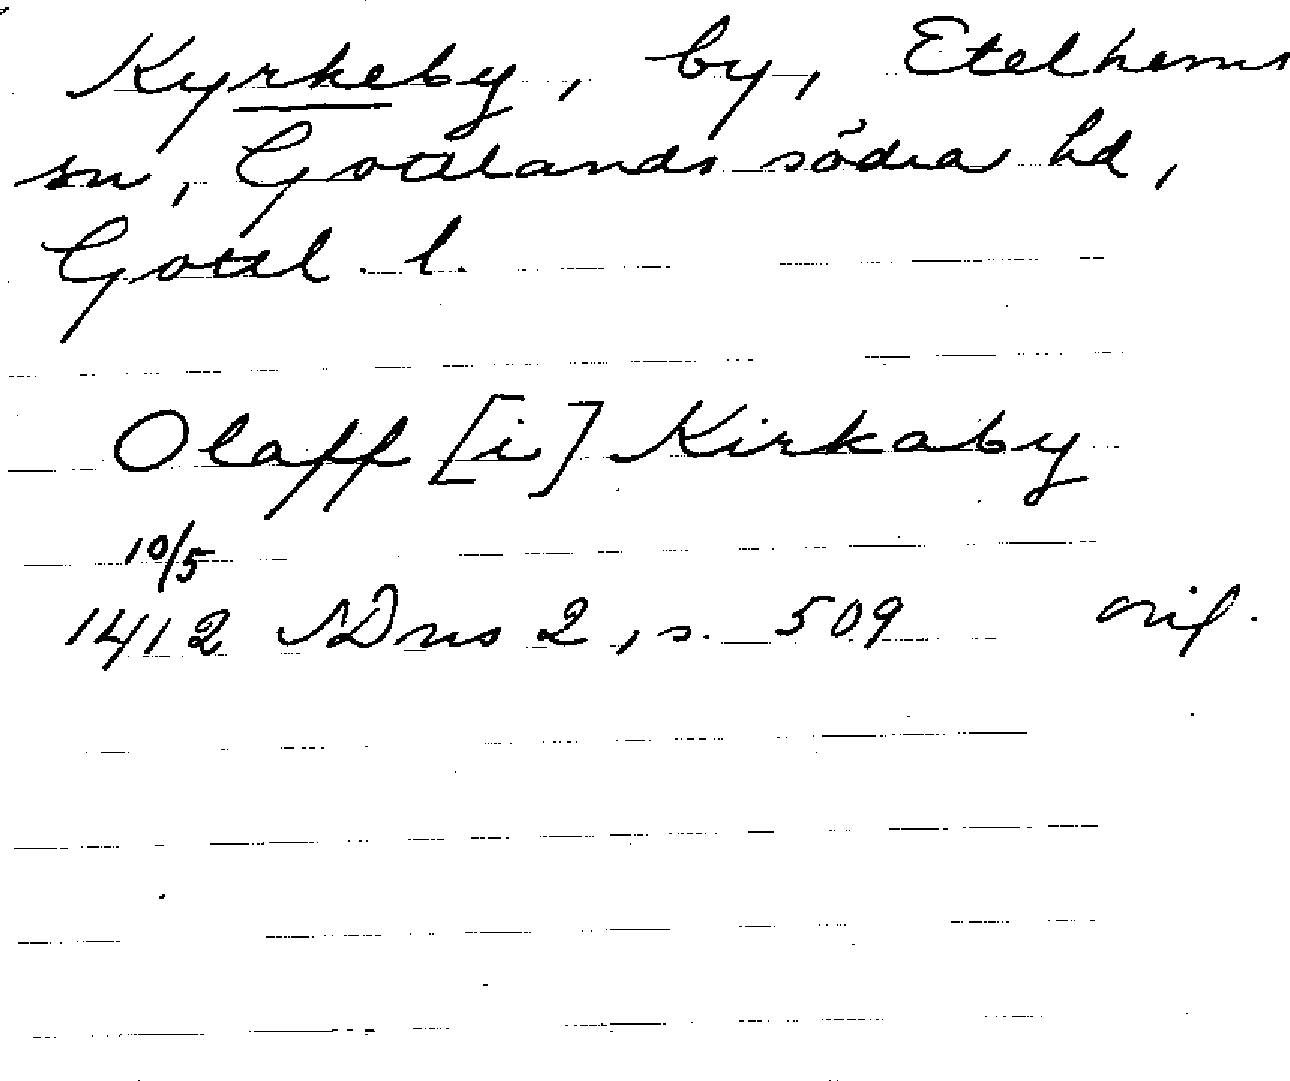 Kyrkeby, by, Etelhems
sn, Gottlands södra hd,
Gottl. l.
Olaff [i] Kirkaby
10/5
1412 SDns 2, s. 509 orig.